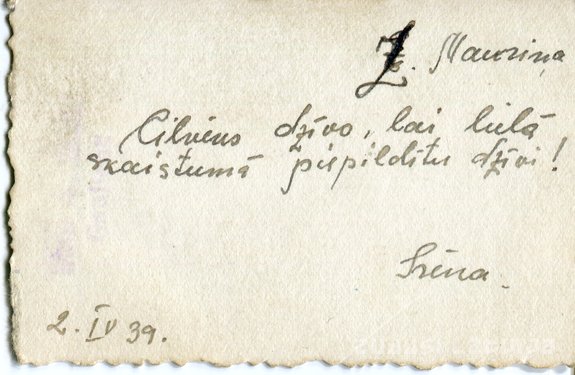 Z. Mauriņa
Cilvēks dzīvo, lai lielā
skaistumā piepildītu dzīvi!
Irēna.
2. IV 39.